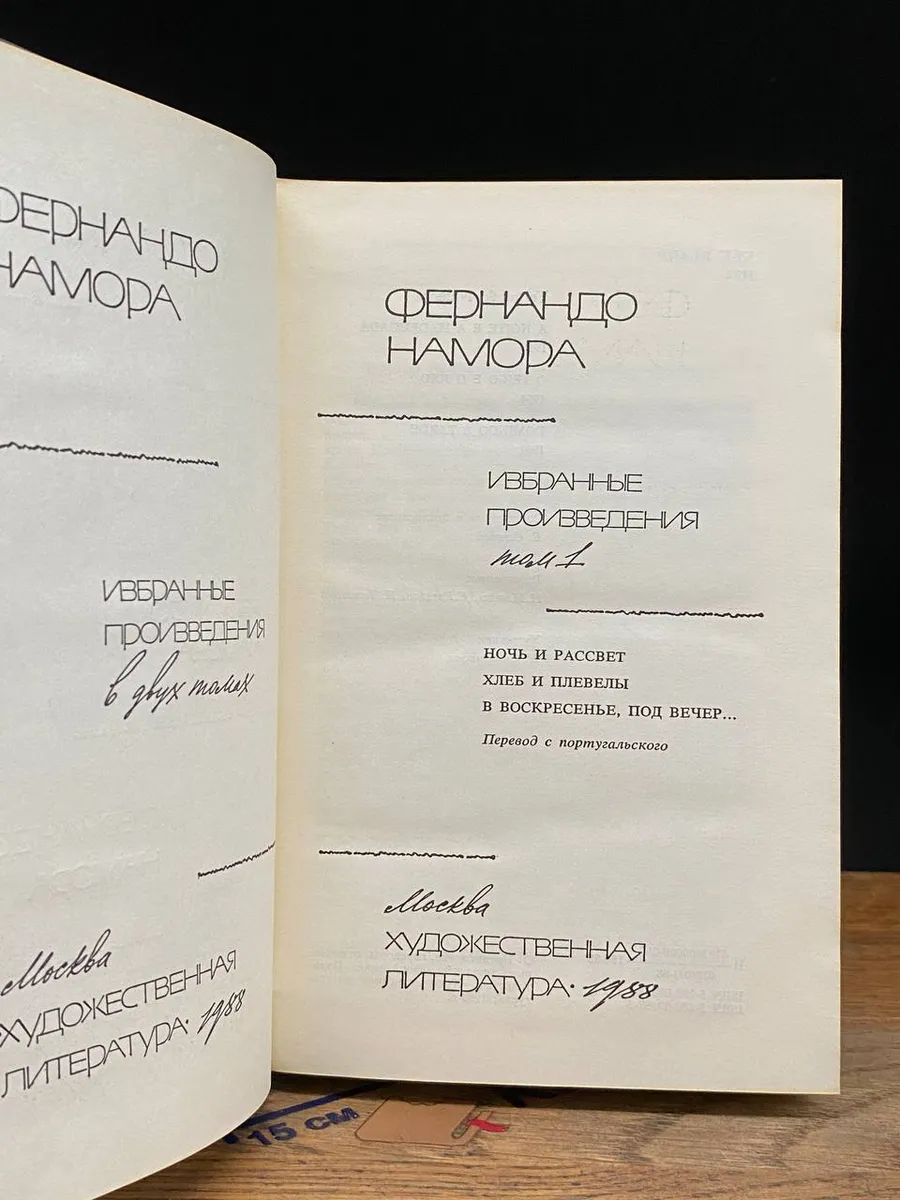 ФЕРНАНДО
НАМОРА
ИЗБРАННЫЕ
ПРОИЗВЕДЕНИЯ
в двух томах
Москва
ХУДОЖЕСТВЕННАЯ
ЛИТЕРАТУРА · 1988
ФЕРНАНДО
НАМОРА
ИЗБРАННЫЕ
ПРОИЗВЕДЕНИЯ
том 1
НОЧЬ И РАССВЕТ
ХЛЕБ И ПЛЕВЕЛЫ
В ВОСКРЕСЕНЬЕ, ПОД ВЕЧЕР...
Перевод с португальского
Москва
ХУДОЖЕСТВЕННАЯ
ЛИТЕРАТУРА · 1988
15 СМ